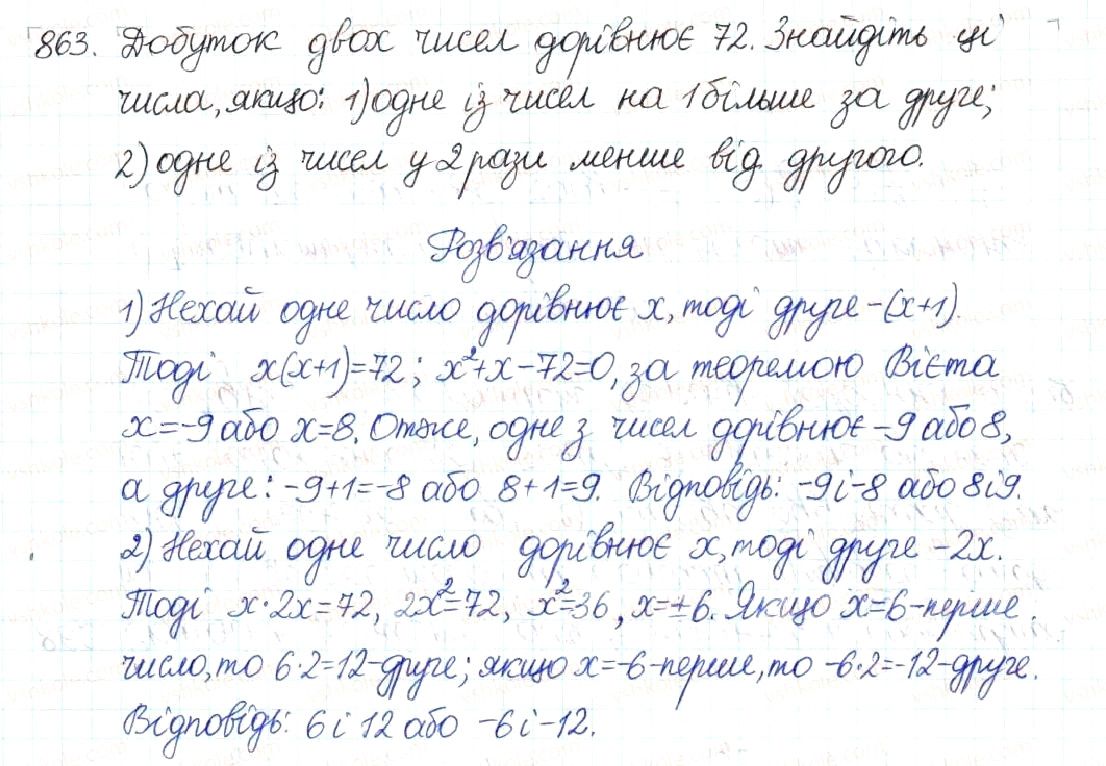 863. Добуток двох чисел дорівнює 72. Знайдіть ці
числа, якщо: 1) одне із чисел на 1 більше за друге;
2) одне із чисел у 2 рази менше від другого.
Розв'язання
1) Нехай одне число дорівнює x, тоді друге - (x+1).
Тоді x(x+1)=72; x²+x-72=0, за теоремою Вієта
x=-9 або x=8. Отже, одне з чисел дорівнює -9 або 8,
а друге: -9+1=-8 або 8+1=9. Відповідь: -9 і -8 або 8 і 9.
2) Нехай одне число дорівнює x, тоді друге - 2x.
Тоді x·2x=72, 2x²=72, x²=36, x=±6. Якщо x=6 - перше
число, то 6·2=12 - друге; якщо x=-6 - перше, то -6·2=-12 - друге.
Відповідь: 6 і 12 або -6 і -12.